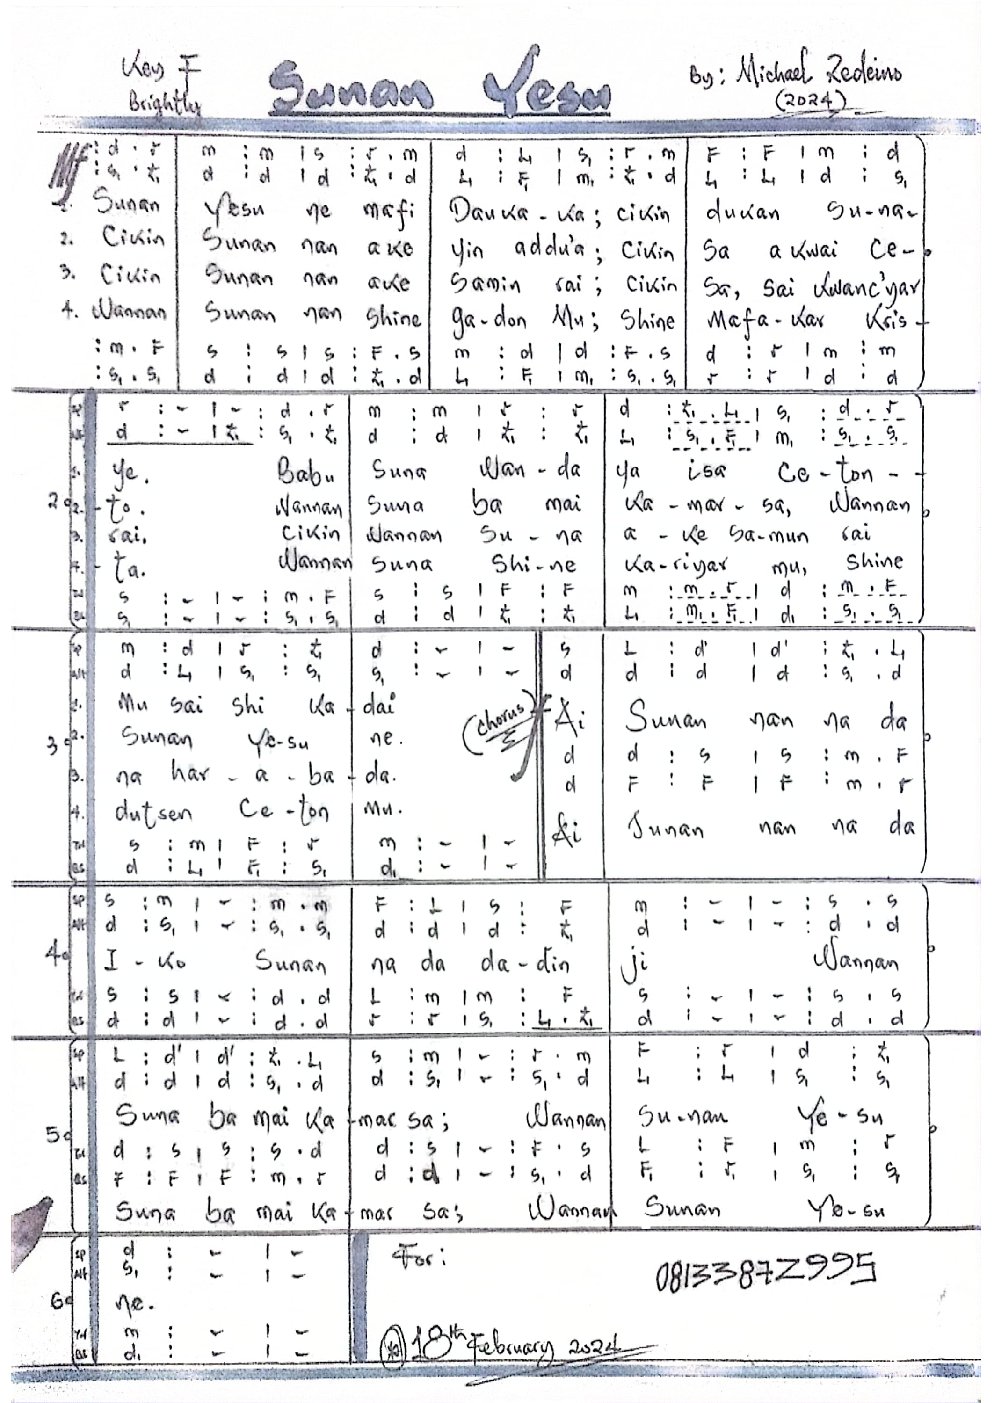 Key F
Brightly
Sunan Yesu
By: Michael
(2024)
mf
: d . r | m : m | s : r . m | d : L, | s, : r . m | F : F | m : d
: s, . t, | d : d | d : t, . d | L, : F, | m, : t, . d | L, : L, | d : s,
1. Sunan Yesu ne mafi Dauka - ka; cikin dukan Su-na-
2. Cikin Sunan nan ake yin addu'a; Cikin Sa akwai Ce-
3. Cikin Sunan nan ake Samin rai; cikin Sa, Sai Kwanc'yar
4. Wannan Sunan nan Shine ga-don Mu; Shine Mafa-kar Kris-
: m . F | s : s | s : F . s | m : d | d : F . s | d : r | m : m
: s, . s, | d : d | d : t, . d | L, : F, | m, : s, . s, | r : r | d : d
SP r : - | - : d . r | m : m | r : r | d : t, . L, | s, : d . r
Alt d : - | t, : s, . t, | d : d | t, : t, | L, : s, . F, | m, : s, . s,
2.
1. ye. Babu Suna Wan-da ya isa Ce-ton-
2. -to. Wannan Suna ba mai Ka-mar-sa, Wannan
3. rai, Cikin Wannan Su-na a-ke Sa-mun rai
4. -ta. Wannan Suna Shi-ne Ka-riyar mu, Shine
Tn s : - | - : m . F | s : s | F : F | m : m . r | d : m . F
BS s, : - | - : s, . s, | d : d | t, : t, | L, : m, . F, | d, : s, . s,
SP m : d | r : t, | d : - | - | s | L : d' | d' : t, . L,
Alt d : L, | s, : s, | s, : - | - | d | d : d | d : s, . d
3.
1. Mu sai shi ka-dai
(Chorus)
f
Ai Sunan nan na da
2. Sunan Ye-su ne.
d | d : s | s : m . F
3. na har-a-ba-da.
d | F : F | F : m . r
4. dutsen Ce-ton Mu.
Ai Sunan nan na da
Tn s : m | F : r | m : - | -
BS d : L, | F, : s, | d, : - | -
SP s : m | - : m . m | F : L | s : F | m : - | - : s . s
Alt d : s, | - : s, . s, | d : d | d : t, | d : - | - : d . d
4.
I-ko Sunan na da da-din ji Wannan
Tn s : s | - : d . d | L : m | m : F | s : - | - : s . s
BS d : d | - : d . d | r : r | s, : L, . t, | d : - | - : d . d
SP L : d' | d' : t, . L, | s : m | - : r . m | F : r | d : t,
Alt d : d | d : s, . d | d : s, | - : s, . d | L, : L, | s, : s,
5.
Suna ba mai Ka-mar sa; Wannan Su-nan Ye-su
Tn d : s | s : s . d | d : s | - : F . s | L : F | m : r
BS F : F | F : m . r | d : d | - : s, . d | F, : r, | s, : s,
Suna ba mai Ka-mar Sa; Wannan Sunan Ye-su
SP d : - | -
Alt s, : - | -
6.
ne.
Tn m : - | -
BS d, : - | -
For:
08133872995
18th February 2024